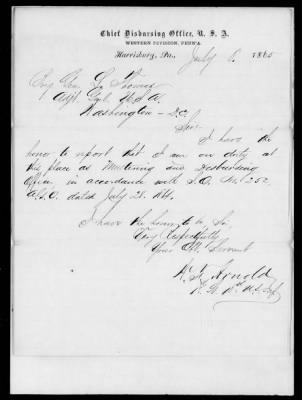 Chief Disbursing Office, U. S. A.
WESTERN DIVISION, PENN'A.
Harrisburg, Pa., July 6. 1865
Brig Gen. L. Thomas
Adjt. Genl. U.S.A.
Washington - D.C.
Sir
I have the
honor to report that I am on duty at
this place as Mustering and Disbursing
Officer in accordance with S.O. No. 252,
A.G.O. dated July 28. 1864.
I have the honor to be, Sir,
Very Respectfully
Your Obt. Servant
Arnold